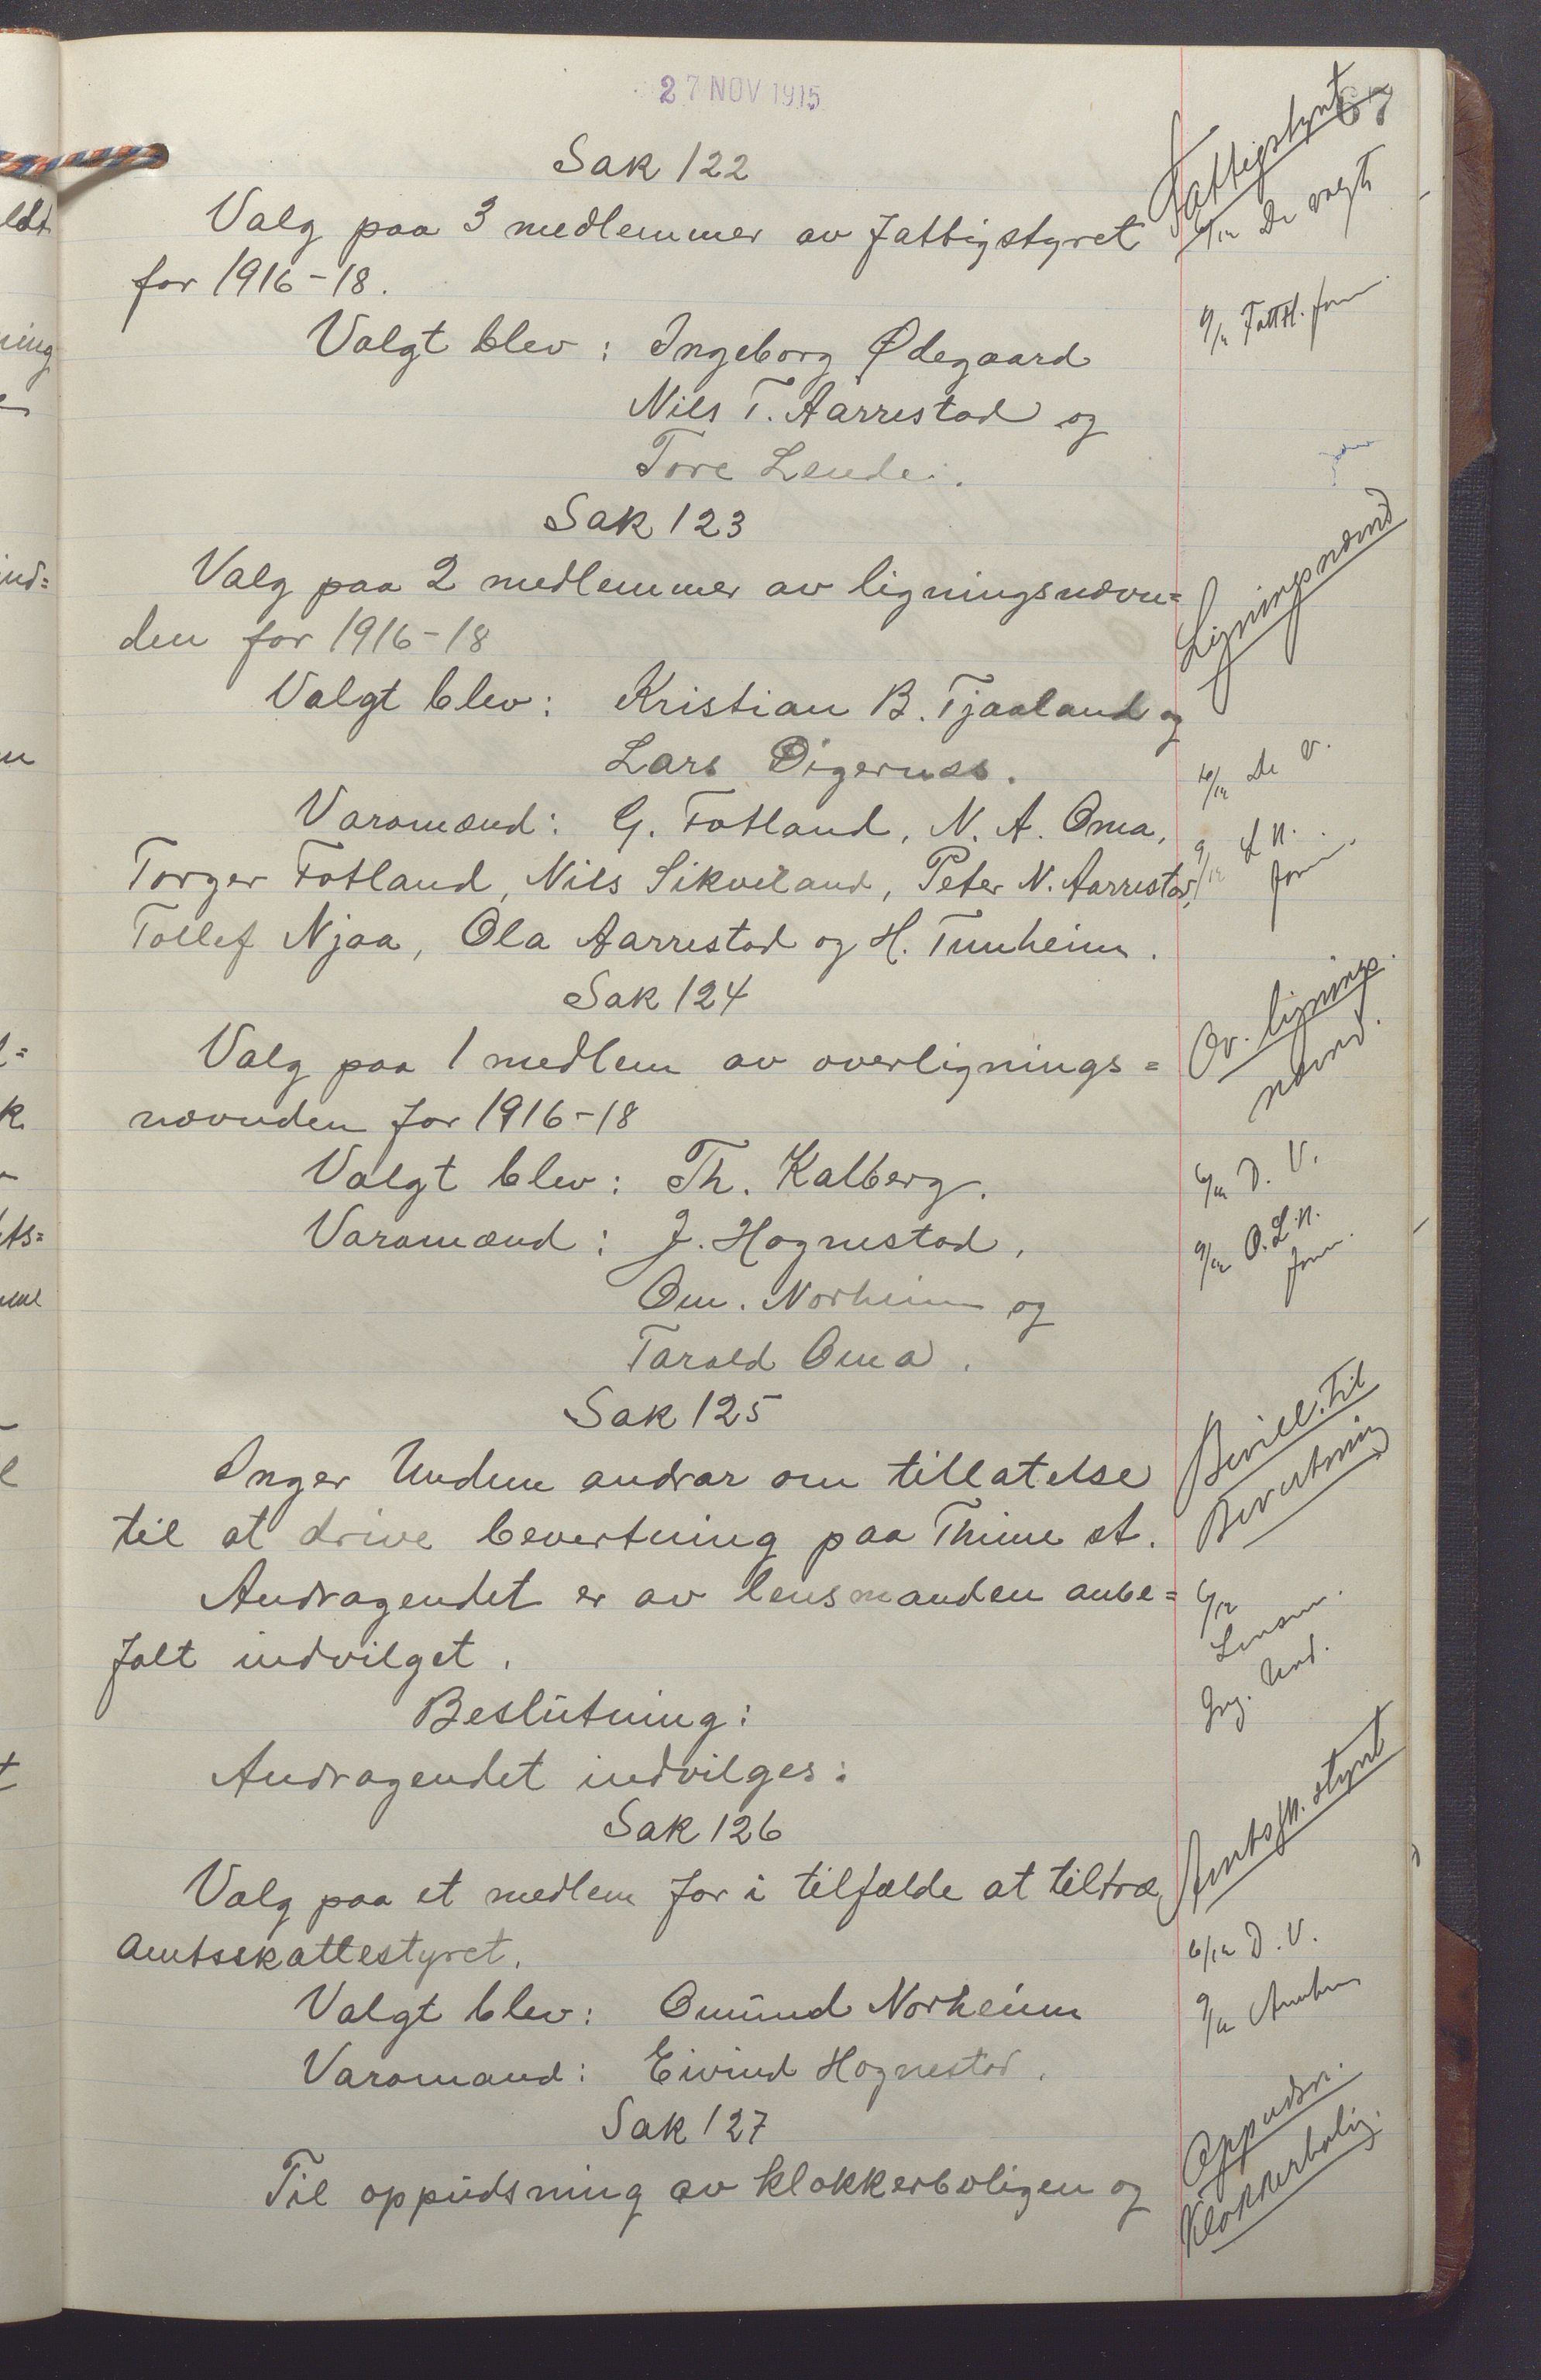 27 NOV 1915
67
Sak 122
Fattigstyret
Valg paa 3 medlemmer av fattigstyret
6/12 De valgte
for 1916-18.
9/12 Fattst. form.
Valgt blev: Ingeborg Ødegaard
Nils T. Aarrestad og
Tore Lende.
Sak 123
Ligningsnævnd
Valg paa 2 medlemmer av ligningsnævn=
den for 1916-18
Valgt blev: Kristian B. Tjaaland og
Lars Øigernæs.
6/12 de v.
Varamænd: G. Fotland, N. A. Oma,
9/12 L. N.
Torger Fotland, Nils Sikveland, Peter N. Aarrestad,
form.
Tollef Njaa, Ola Aarrestad og H. Tunheim.
Sak 124
Ov. lignings
nævnd.
Valg paa 1 medlem av overlignings=
nævnden for 1916-18
Valgt blev: Th. Kalberg.
6/12 D. V.
Varamænd: J. Hognestad,
9/12 O.L.N.
form.
Om. Norheim og
Tarald Oma.
Sak 125
Bevill. til
Bevertning
Inger Undem andrar om tillatelse
til at drive bevertning paa Thime st.
Andragendet er av lensmanden anbe=
6/12
Lensm.
falt indvilget.
Ing. Und.
Beslutning:
Andragendet indvilges.
Sak 126
Amtssk. styret
Valg paa et medlem for i tilfælde at tiltræ
amtsskattestyret.
6/12 D. V.
Valgt blev: Omund Norheim
9/12 Amtm
Varamand: Eivind Hognestad.
Sak 127
Oppudsn.
Klokkerbolig.
Til oppudsning av klokkerboligen og